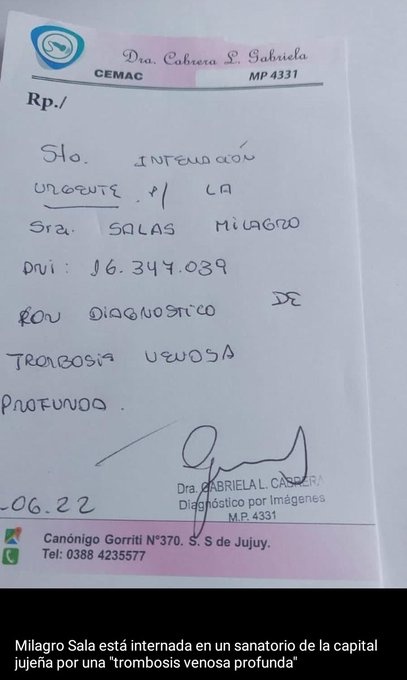 Dra. Cabrera L. Gabriela
CEMAC MP 4331
Rp./
Sto. INTERNACIÓN
URGENTE P/ LA
Sra. SALAS MILAGRO
DNI: 16.347.039
CON DIAGNOSTICO DE
TROMBOSIS VENOSA
PROFUNDA.
Dra. GABRIELA L. CABRERA
Diagnóstico por Imágenes
M.P. 4331
-06.22
Canónigo Gorriti N°370. S. S de Jujuy.
Tel: 0388 4235577
Milagro Sala está internada en un sanatorio de la capital
jujeña por una "trombosis venosa profunda"